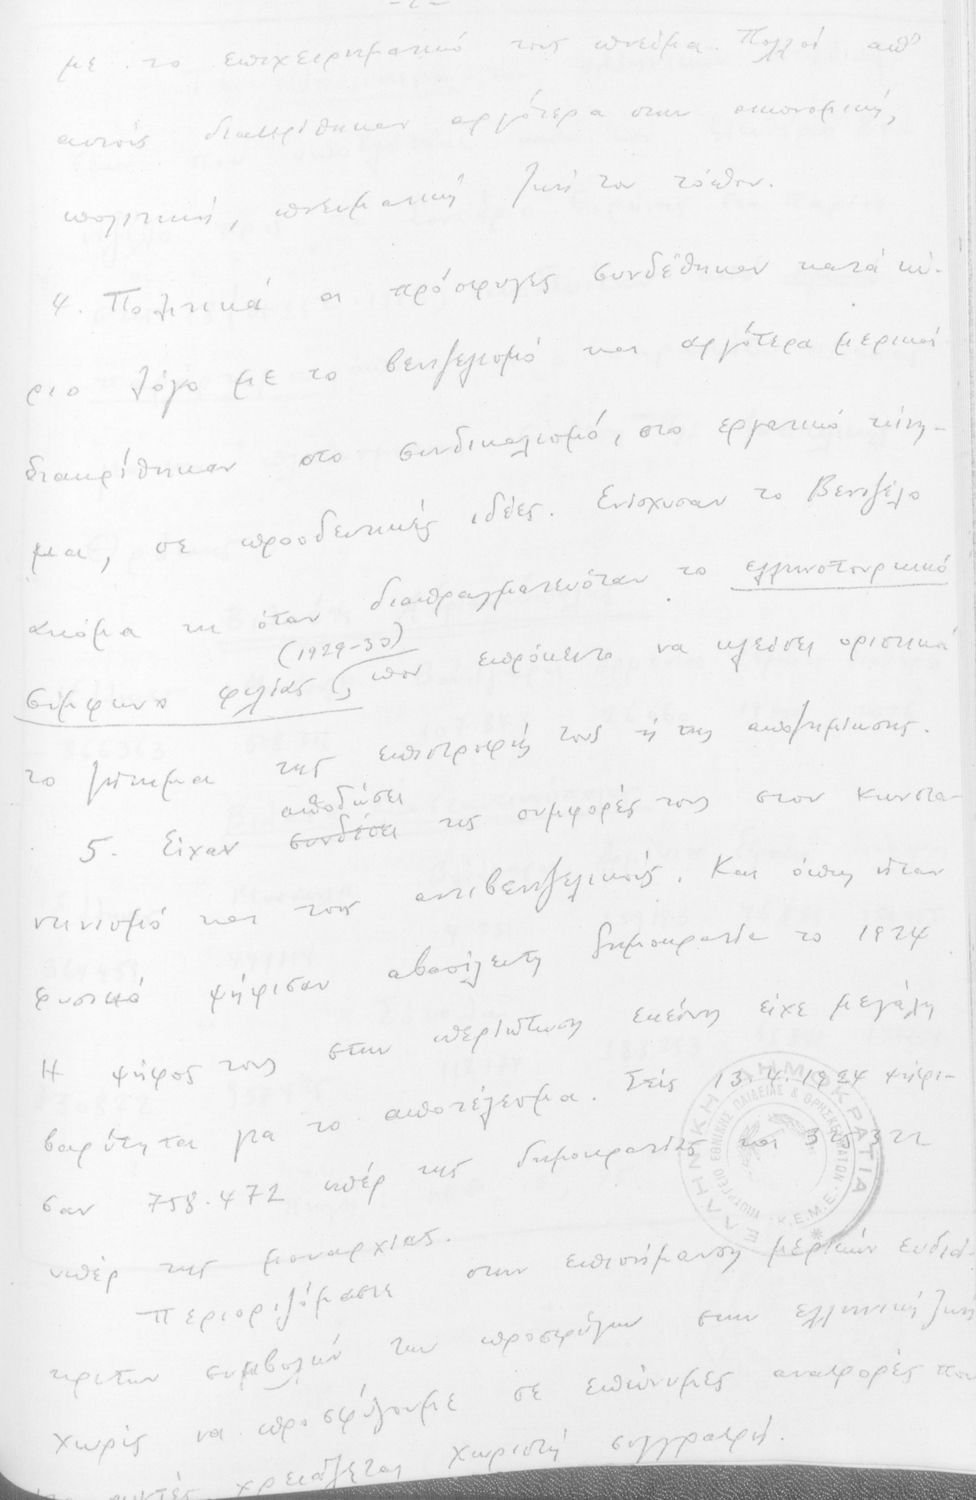 -2-
με το επιχειρηματικό τους πνεύμα. Πολλοί απ'
αυτούς διακρίθηκαν αργότερα στην οικονομική,
πολιτική, πνευματική ζωή του τόπου.
4. Πολιτικά οι πρόσφυγες συνδέθηκαν κατά κύ-
ριο λόγο με το βενιζελισμό και αργότερα μερικοί
διακρίθηκαν στο συνδικαλισμό, στο εργατικό κίνη-
μα, σε προοδευτικές ιδέες. Ενίσχυσαν το Βενιζέλο
ακόμα κι όταν διαπραγματευόταν το ελληνοτουρκικό
(1929-30)
σύμφωνο φιλίας, που επρόκειτο να κλείσει οριστικά
το ζήτημα της επιστροφής τους ή της αποζημίωσης.
αποδώσει
5. Είχαν συνδέσει τις συμφορές τους στον Κωνστα-
ντινισμό και τους αντιβενιζελικούς. Και όπως ήταν
φυσικό ψήφισαν αβασίλευτη δημοκρατία το 1924
Η ψήφος τους στην περίπτωση εκείνη είχε μεγάλη
βαρύτητα για το αποτέλεσμα. Στις 13.4.1924 ψήφι-
σαν 758.472 υπέρ της δημοκρατίας και 325322
υπέρ της μοναρχίας.
Περιοριζόμαστε στην επισήμανση μερικών ευδιά-
κριτων συμβολών των προσφύγων στην ελληνική ζωή
χωρίς να προσφύγουμε σε επώνυμες αναφορές που
χρειάζεται χωριστή συγγραφή.
ΕΛΛΗΝΙΚΗ ΔΗΜΟΚΡΑΤΙΑ
ΥΠΟΥΡΓΕΙΟ ΕΘΝΙΚΗΣ ΠΑΙΔΕΙΑΣ & ΘΡΗΣΚΕΥΜΑΤΩΝ
Κ.Ε.Μ.Ε.